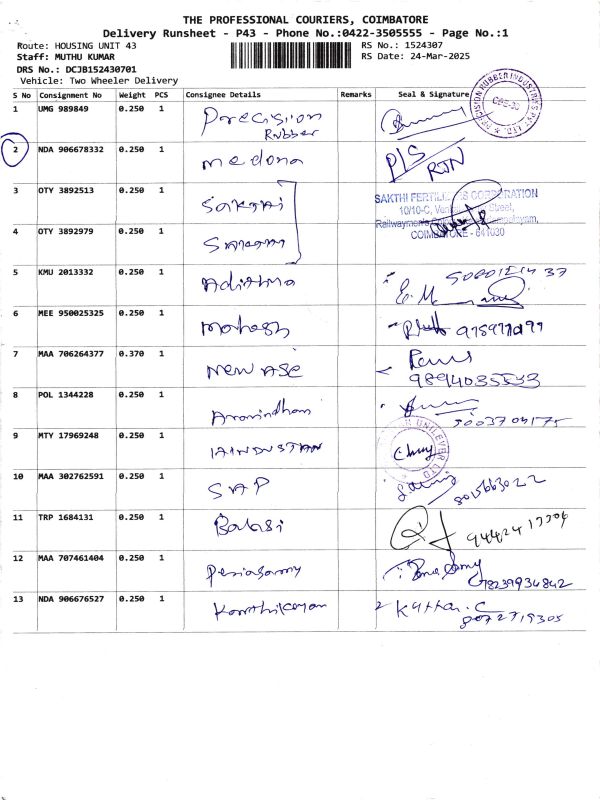 THE PROFESSIONAL COURIERS, COIMBATORE
Delivery Runsheet - P43 - Phone No.:0422-3505555 - Page No.:1
Route: HOUSING UNIT 43
RS No.: 1524307
Staff: MUTHU KUMAR
RS Date: 24-Mar-2025
DRS No.: DCJB152430701
Vehicle: Two Wheeler Delivery
S No Consignment No Weight PCS Consignee Details Remarks Seal & Signature
1 UMG 989849 0.250 1 Precision
Rubber
2 NDA 906678332 0.250 1 medona P/S
RJN
3 OTY 3892513 0.250 1 Sakthi SAKTHI FERTILIZERS CORPORATION
10/10-C, Street,
4 OTY 3892979 0.250 1 Sakthi
COIMBATORE - 641030
5 KMU 2013332 0.250 1 Adithya
6 MEE 950025325 0.250 1 mahesh
7 MAA 706264377 0.370 1 NEW ASE
8 POL 1344228 0.250 1 Aravindham
9 MTY 17969248 0.250 1 HINDUSTAN UNILEVER LTD
10 MAA 302762591 0.250 1 SAP 8015663022
11 TRP 1684131 0.250 1 Balaji
12 MAA 707461404 0.250 1 Periasamy
13 NDA 906676527 0.250 1 Karthikeyan
8072719305